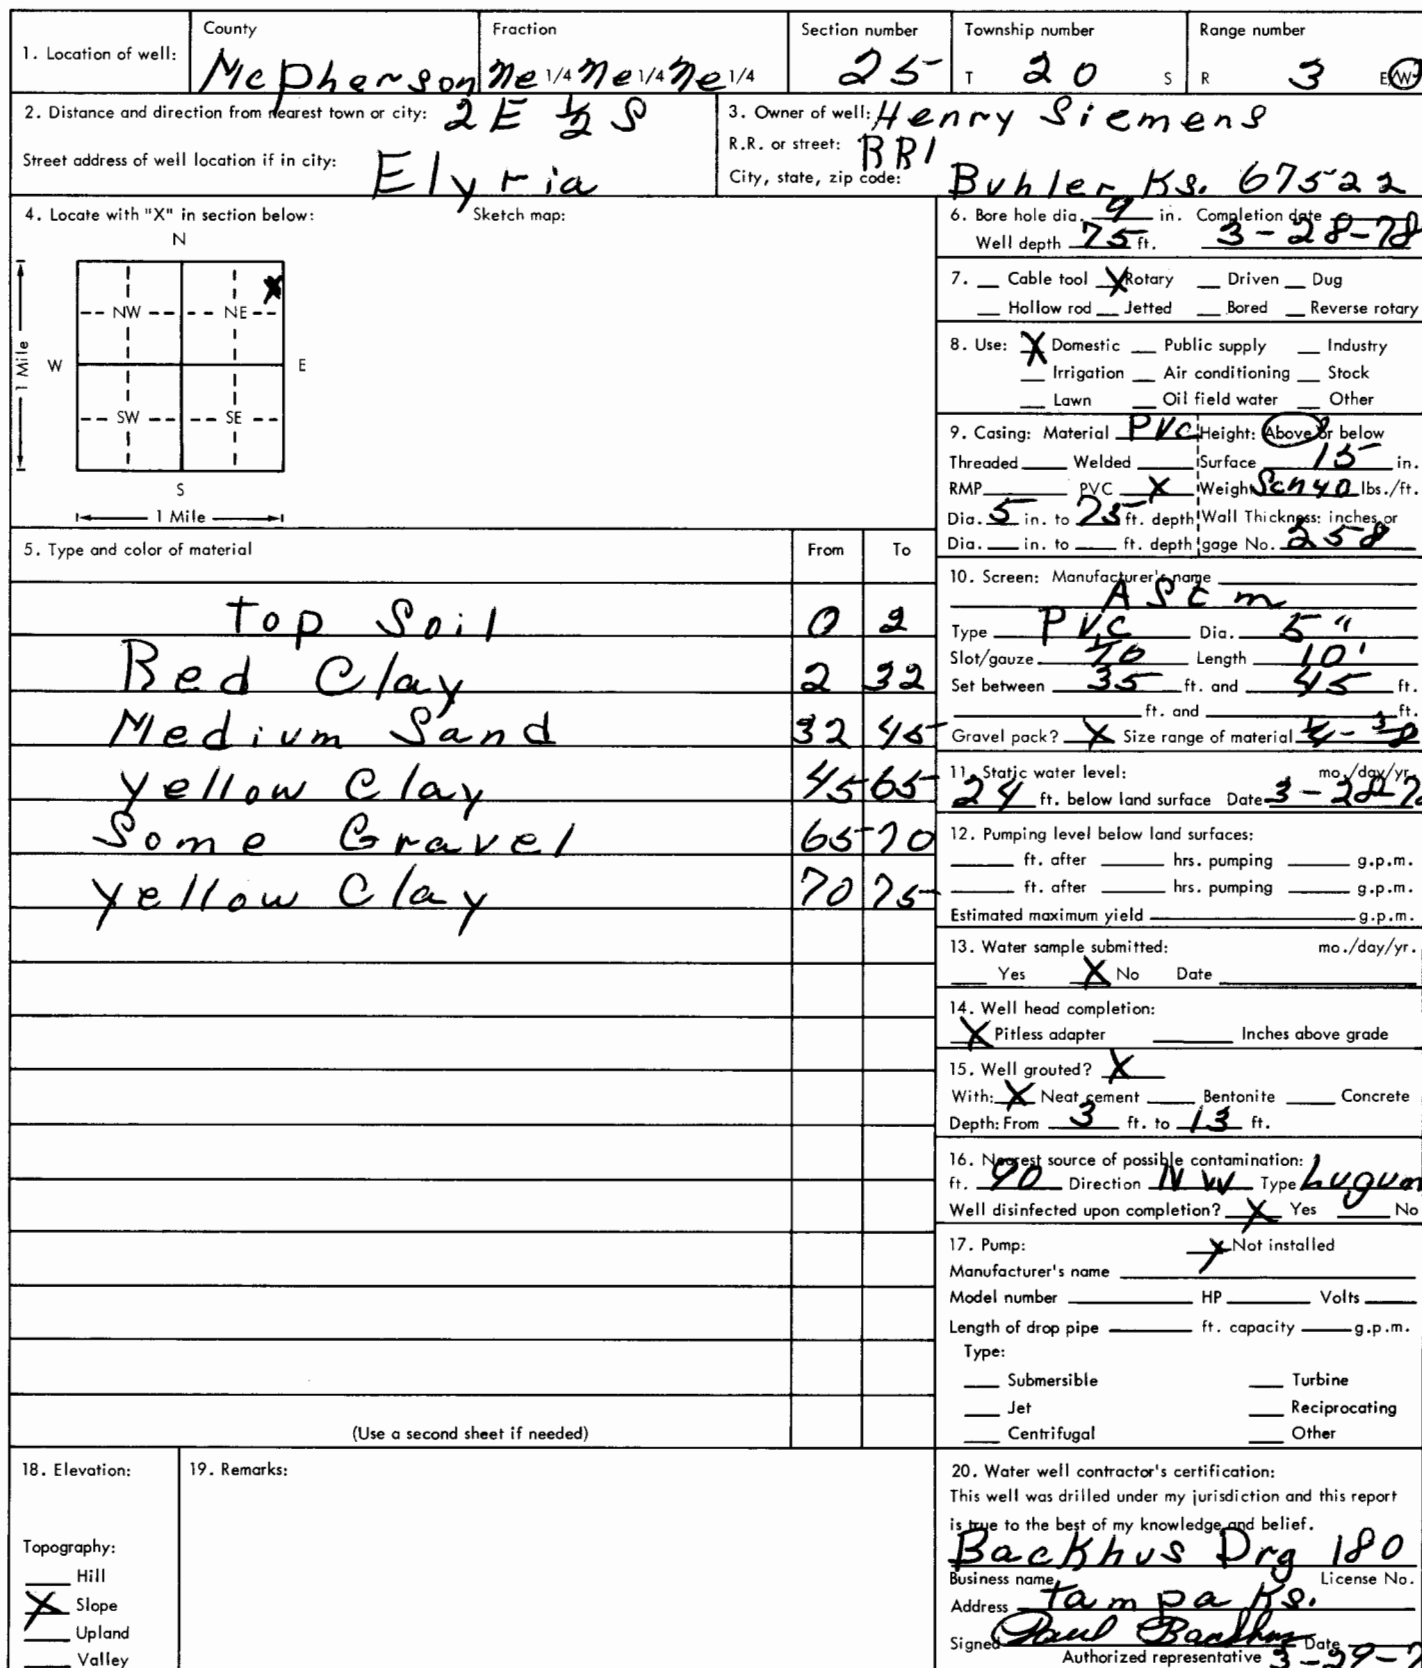 County Fraction Section number Township number Range number
1. Location of well: McPherson Ne 1/4 Ne 1/4 Ne 1/4 25 T 20 S R 3 E W
2. Distance and direction from nearest town or city: 2 E ½ S
Street address of well location if in city: Elyria
3. Owner of well: Henry Siemens
R.R. or street: RR1
City, state, zip code: Buhler, Ks. 67522
4. Locate with "X" in section below: Sketch map:
N
NW NE X
W E
1 Mile
SW SE
S
1 Mile
5. Type and color of material From To
Top Soil 0 2
Red Clay 2 32
Medium Sand 32 45
Yellow Clay 45 65
Some Gravel 65 70
Yellow Clay 70 75
(Use a second sheet if needed)
6. Bore hole dia. 9 in. Completion date
Well depth 75 ft. 3-28-78
7. __ Cable tool X Rotary __ Driven __ Dug
__ Hollow rod __ Jetted __ Bored __ Reverse rotary
8. Use: X Domestic __ Public supply __ Industry
__ Irrigation __ Air conditioning __ Stock
__ Lawn __ Oil field water __ Other
9. Casing: Material PVC Height: Above or below
Threaded ___ Welded ___ Surface 15 in.
RMP ___ PVC X Weight Sch 40 lbs./ft.
Dia. 5 in. to 75 ft. depth Wall Thickness: inches or
Dia. ___ in. to ___ ft. depth gage No. 258
10. Screen: Manufacturer's name
AStm
Type PVC Dia. 5"
Slot/gauze Length 10'
Set between 35 ft. and 45 ft.
___ ft. and ___ ft.
Gravel pack? X Size range of material ¼-⅜
11. Static water level: mo./day/yr.
24 ft. below land surface Date 3-28-7
12. Pumping level below land surfaces:
___ ft. after ___ hrs. pumping ___ g.p.m.
___ ft. after ___ hrs. pumping ___ g.p.m.
Estimated maximum yield ___ g.p.m.
13. Water sample submitted: mo./day/yr.
___ Yes X No Date ___
14. Well head completion:
X Pitless adapter ___ Inches above grade
15. Well grouted? X
With: X Neat cement ___ Bentonite ___ Concrete
Depth: From 3 ft. to 13 ft.
16. Nearest source of possible contamination:
ft. 90 Direction NW Type Lugun
Well disinfected upon completion? X Yes ___ No
17. Pump: X Not installed
Manufacturer's name ___
Model number ___ HP ___ Volts ___
Length of drop pipe ___ ft. capacity ___ g.p.m.
Type:
___ Submersible ___ Turbine
___ Jet ___ Reciprocating
___ Centrifugal ___ Other
18. Elevation:
Topography:
___ Hill
X Slope
___ Upland
___ Valley
19. Remarks:
20. Water well contractor's certification:
This well was drilled under my jurisdiction and this report
is true to the best of my knowledge and belief.
Backhus Drg 180
Business name License No.
Address Tampa Ks.
Signed Paul Backhus Date
Authorized representative 3-29-7